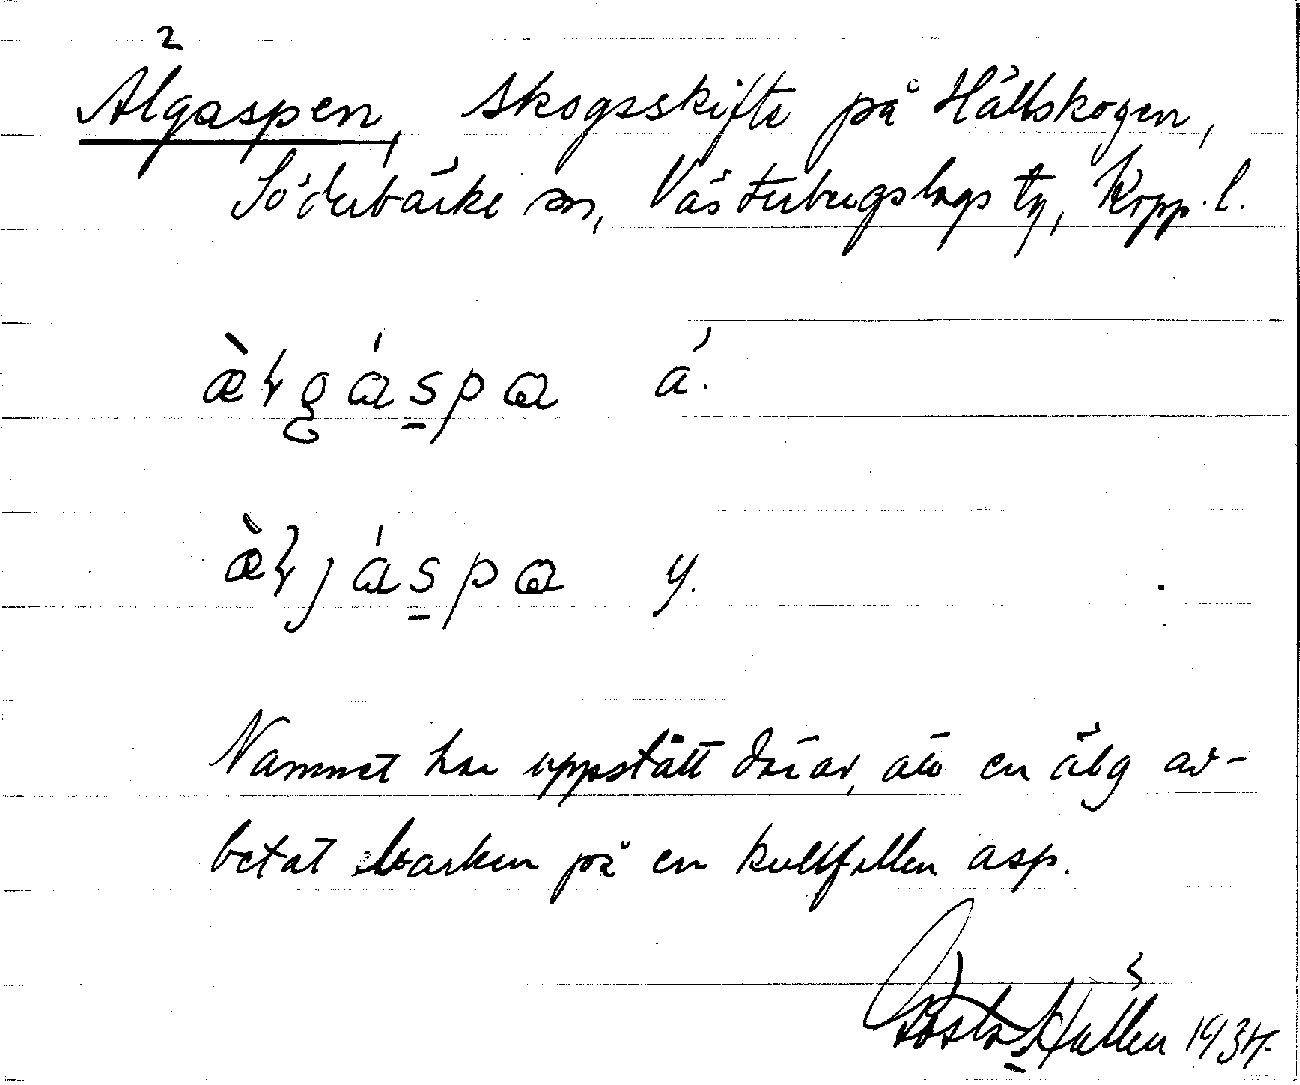 2
Älgaspen, skogsskifte på Hällskogen,
Söderbärke sn, Västerbergslags tg, Kopp. l.
æ̀ɫgáspa á.
æ̀ɫjáspa y.
Namnet har uppstått därav, att en älg av-
betat barken på en kullfallen asp.
Gösta Hallén 1934.